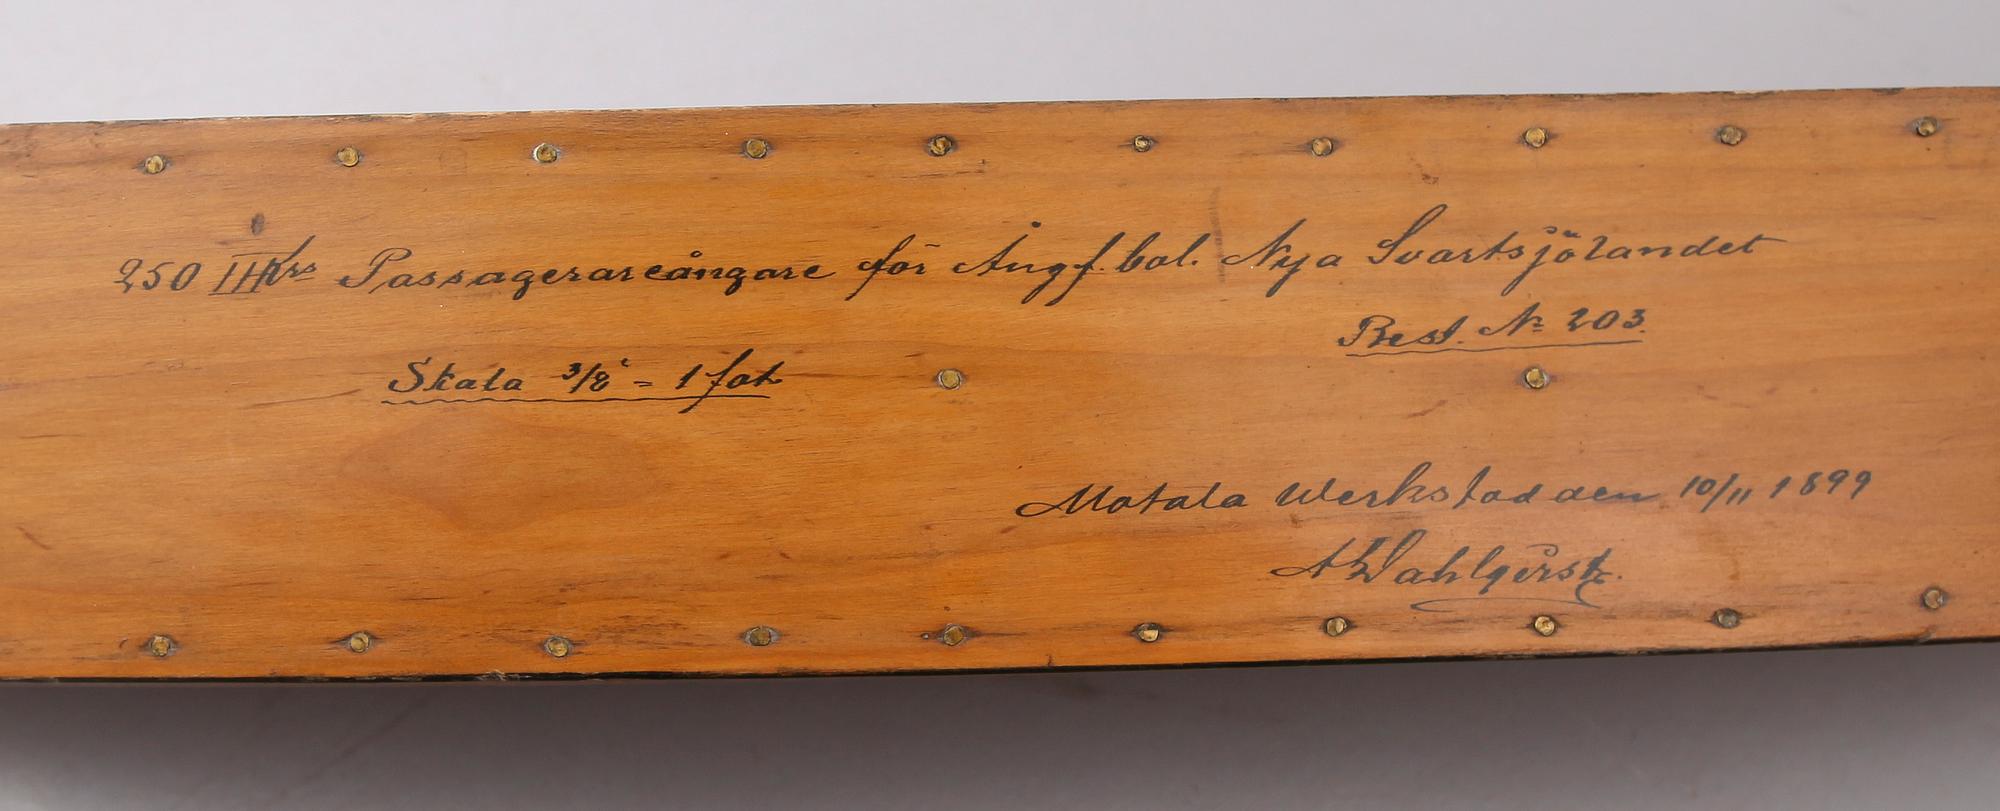 250 IHKrs Passagerareångare för Ångf. bol. Nya Svartsjölandet
Best. No 203.
Skala 3/8" = 1 fot
Motala Werkstad den 10/11 1899